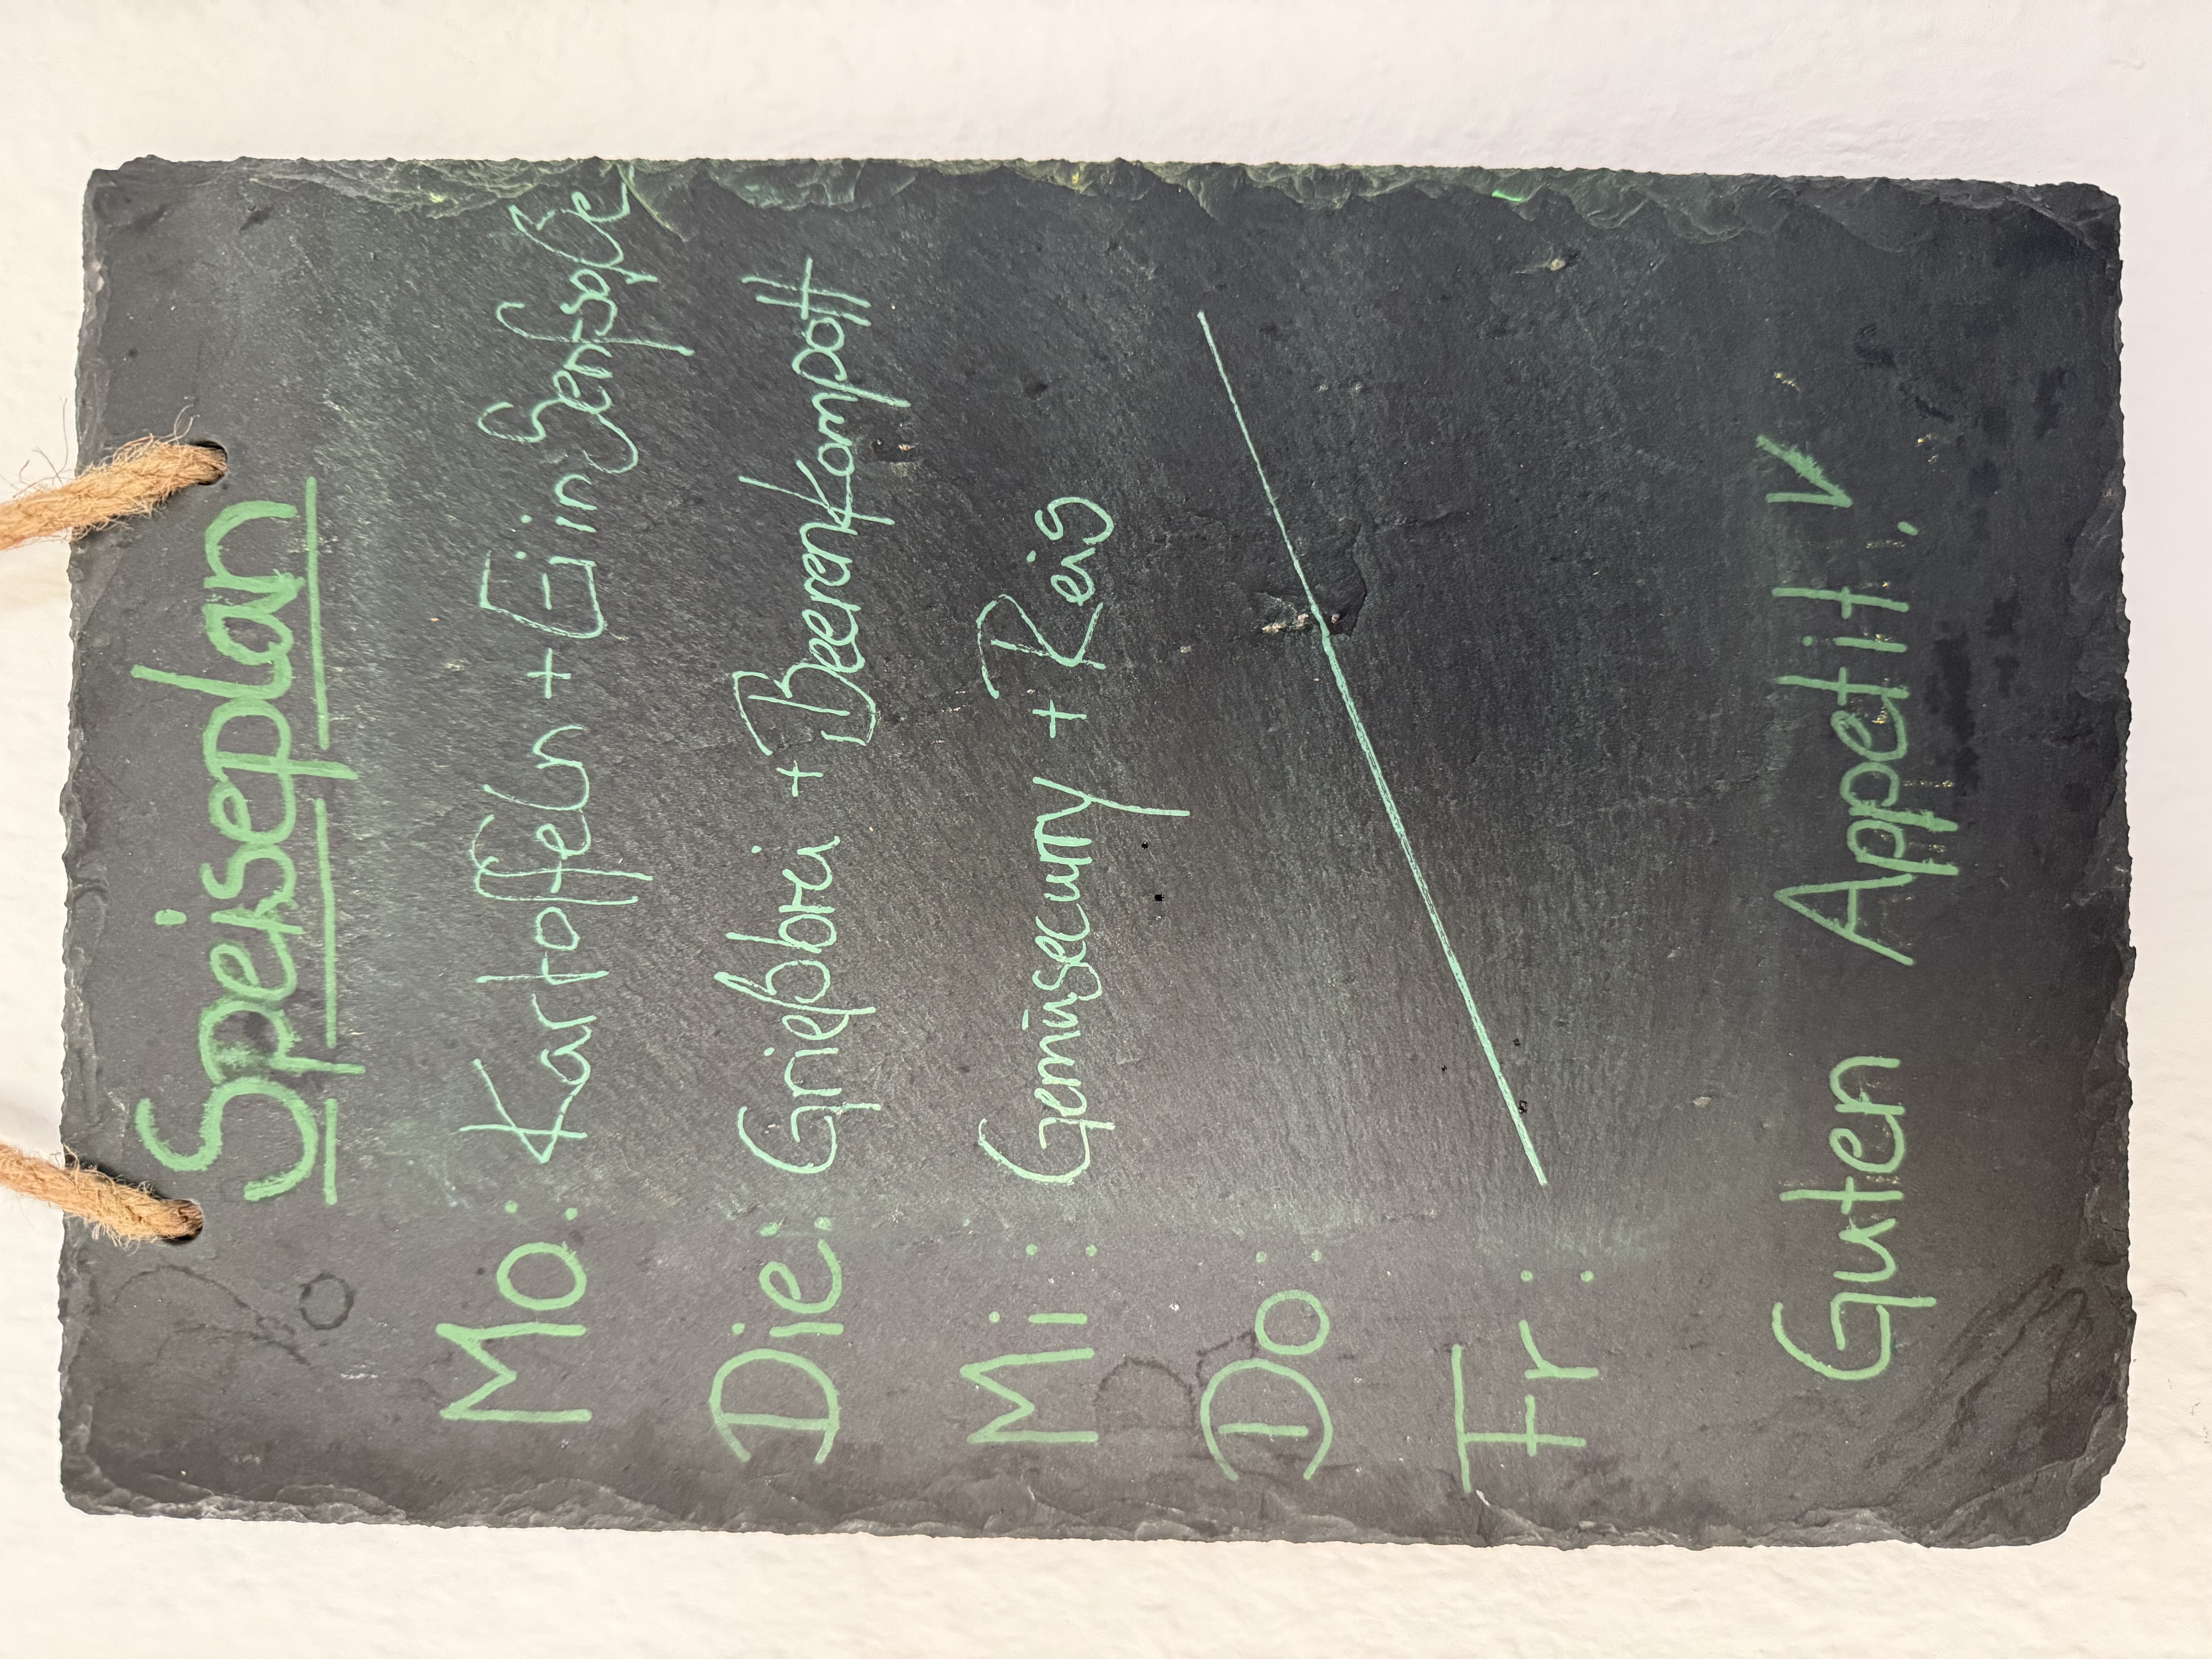 Speiseplan
Mo: Kartoffeln + Ei in Senfsoße
Die: Grießbrei + Beerenkompott
Mi: Gemüsecurry + Reis
Do:
Fr:
Guten Appetit!